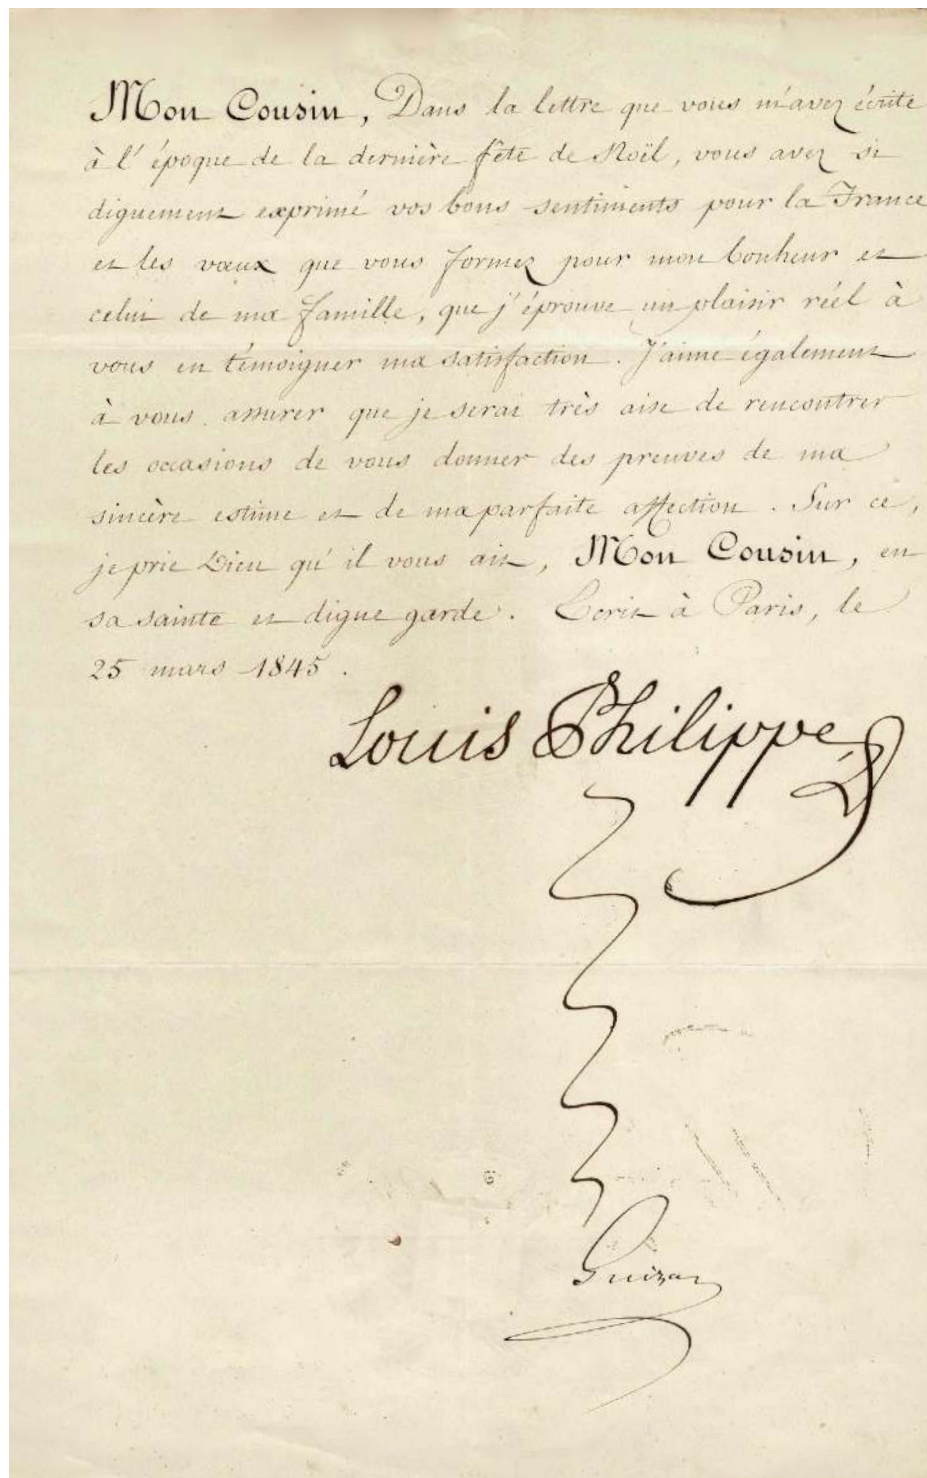 Mon Cousin, Dans la lettre que vous m'avez écrite
à l'époque de la dernière fête de Noël, vous avez si
dignement exprimé vos bons sentiments pour la France
et les vœux que vous formez pour mon bonheur et
celui de ma famille, que j'éprouve un plaisir réel à
vous en témoigner ma satisfaction. J'aime également
à vous assurer que je serai très aise de rencontrer
les occasions de vous donner des preuves de ma
sincère estime et de ma parfaite affection. Sur ce,
je prie Dieu qu'il vous ait, Mon Cousin, en
sa sainte et digne garde. Ecrit à Paris, le
25 mars 1845.
Louis Philippe
Guizot